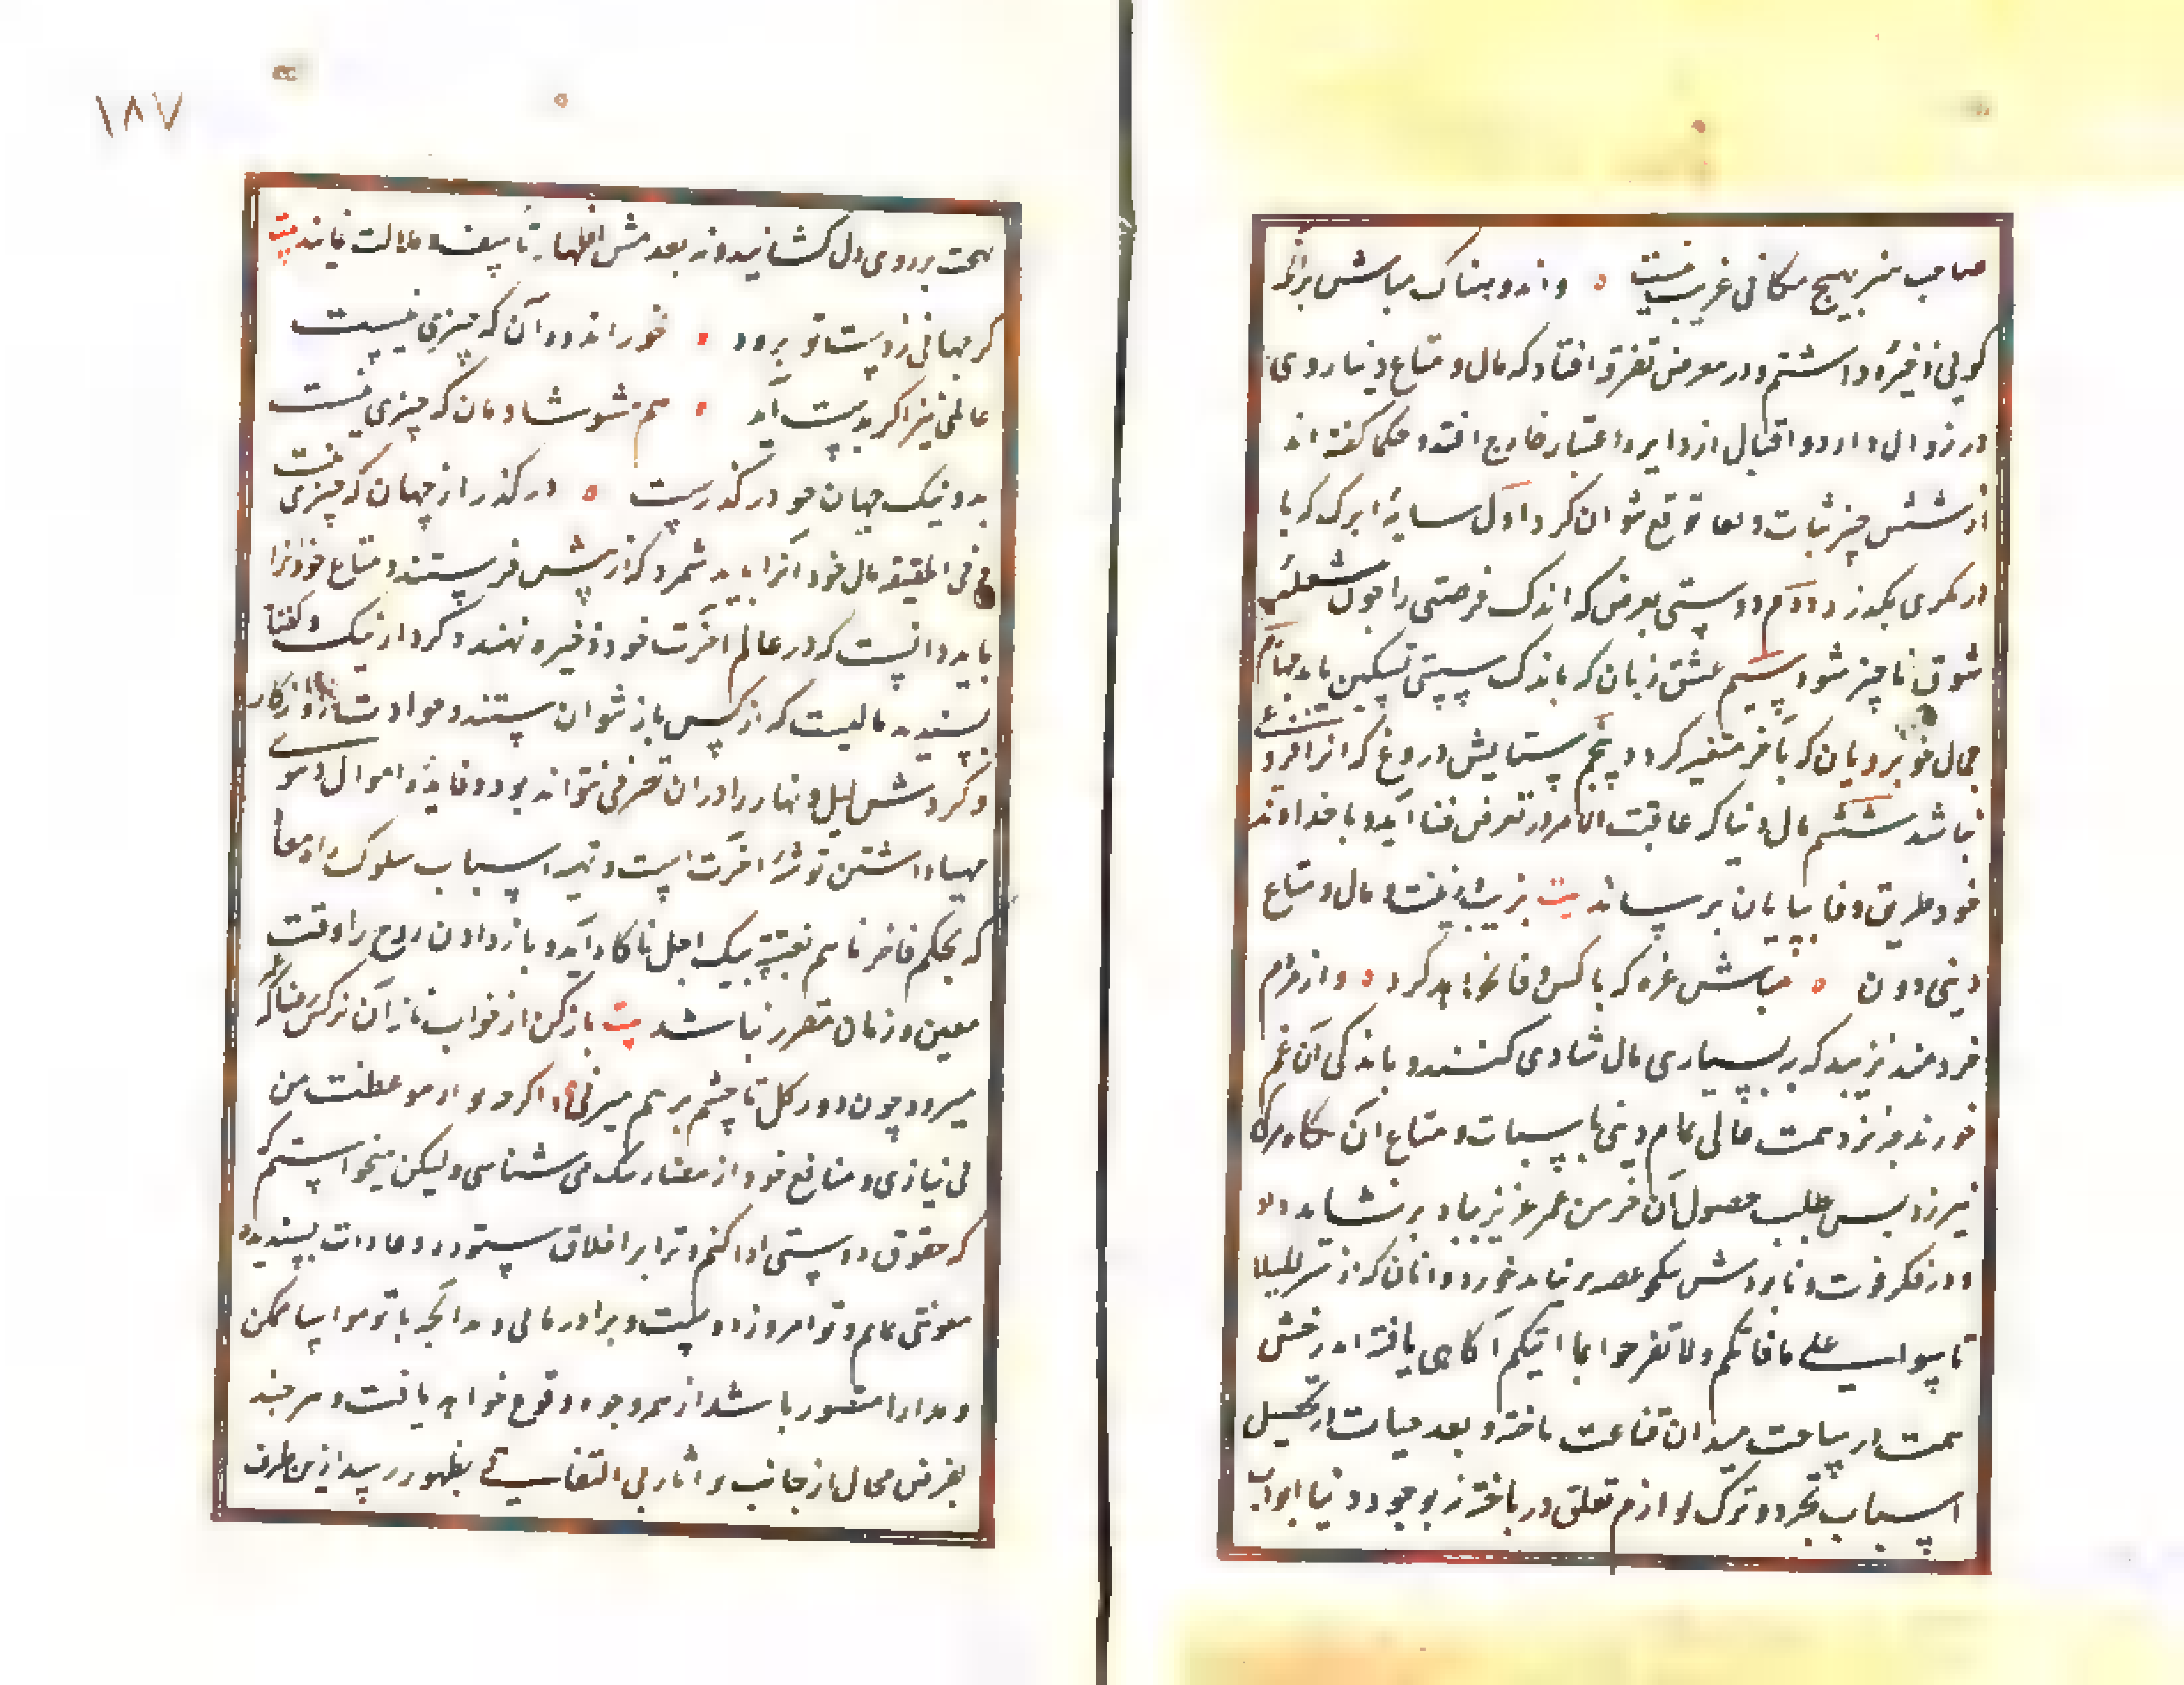 صاحب هنر بهیچ مکانی غریب نیست ه واندوهناک مباش برانکه
کویی ذخیرهٔ داشتم ودر معرض تفرقه افتاد که مال و متاع دنیا روی
در زوال دارد و اقبال از دایره اعتبار خارج افتد و حکما کفته اند
از شش چیز ثبات و بقا توقع نتوان کرد اول سایهٔ ابر که تا
در نکری بکذرد دوم دوستی بغرض که اندک فرصتی را چون شعلهٔ
شوق ناچیز شود سیم عشق زنان که باندک سببی تسکین یابد چهارم
جمال خوبرویان که بآخر متغیر کردد پنجم ستایش دروغ که انرا فروغی
نباشد ششم مال دنیا که عاقبت الامر در معرض فنا آید و با خداوند
خود طریق وفا بپایان نرساند بیت بزینت و مال و متاع
دنیی دون ه مباش غره که با کس وفا نخواهد کرد ه و از مردم
خردمند نزیبد که ببسیاری مال شادی کنند و باندکی آن غم
خورند و نزد همت عالی تمام دنیی باسباب و متاع آن بکاه برکی
نیرزد پس بطلب حصول آن خرمن عمر عزیز بباد بر نشاید داد
و در فکر فوت و نابودش یکجو غصه نباید خورد و انان که از سر لکیلا
تاسوا علی ما فاتکم ولا تفرحوا بما اتیکم آکاهی یافته اند رخش
همت در ساحت میدان قناعت تاخته و بعد حیات در تحصیل
اسباب تجرد و ترک لوازم تعلق در باخته نه بوجود دنیا ابواب
۱۸۷
بهجت بر روی دل کشایند و نه بعدمش اظهار تاسف و ملالت نمایند بیت
کر جهانی ز دست تو برود ه مخور اندوه آن که چیزی نیست
عالمی نیز اکر بدست آید ه هم مشو شادمان که چیزی نیست
بد و نیک جهان چو در کذرست ه در کذر از جهان که چیزی نیست
و فی الحقیقه مال خود آنرا باید شمرد که از پیش فرستند و متاع خود انرا
باید دانست که در عالم آخرت خود ذخیره نهند و کردار نیک و کفتار
پسندیده مالیست که از کس باز نتوان ستند و حوادث روزکار
و کردش لیل و نهار را در ان تصرفی نتواند بود و فایدهٔ اموال دنیوی
مهیا داشتن توشهٔ اخرت است و تهیه اسباب سلوک راه معاد
که بحکم فاخذناهم بغتة پیک اجل ناکاه آید و باز دادن روح را وقت
معین و زمان مقرر نباشد بیت باز کن از خواب ناز آن نرکس رعنا که
میرود چون دور کل تا چشم بر هم میزنی ه اکرچه تو از موعظت من
بی نیازی و منافع خود از مضار نیک می شناسی ولیکن میخواستم
که حقوق دوستی ادا کنم و ترا بر اخلاق ستوده و عادات پسندیده
معونتی نمایم و تو امروز دوست و برادر مائی و هر آنچه با تو مواسا ممکن
و مدارا متصور باشد از همه وجوه وقوع خواهد یافت و هر چند
بفرض محال از جانب تو اثار بی التفاتی بظهور رسید ازین طرف